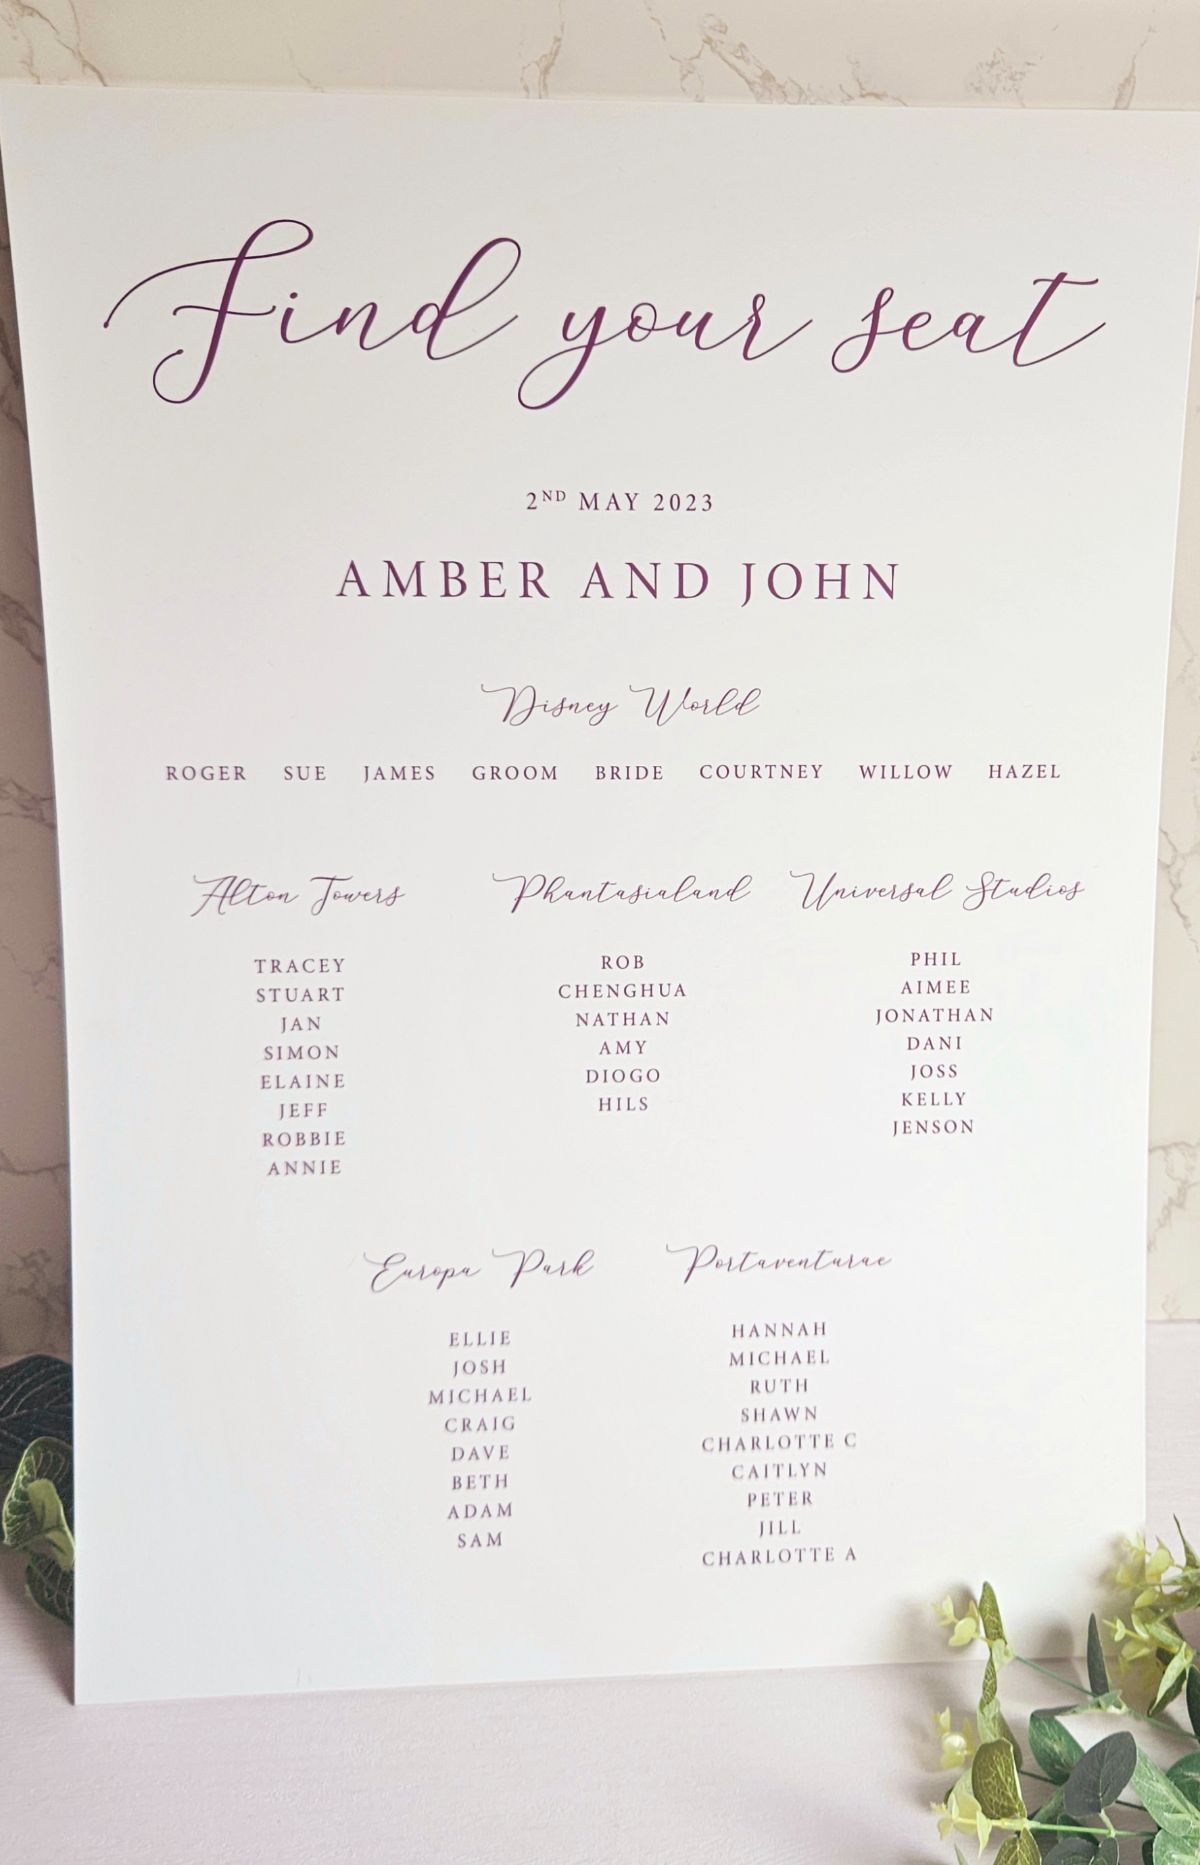 Find your seat
2ND MAY 2023
AMBER AND JOHN
Disney World
ROGER SUE JAMES GROOM BRIDE COURTNEY WILLOW HAZEL
Alton Towers
TRACEY
STUART
JAN
SIMON
ELAINE
JEFF
ROBBIE
ANNIE
Phantasialand
ROB
CHENGHUA
NATHAN
AMY
DIOGO
HILS
Universal Studios
PHIL
AIMEE
JONATHAN
DANI
JOSS
KELLY
JENSON
Europa Park
ELLIE
JOSH
MICHAEL
CRAIG
DAVE
BETH
ADAM
SAM
Portaventurae
HANNAH
MICHAEL
RUTH
SHAWN
CHARLOTTE C
CAITLYN
PETER
JILL
CHARLOTTE A